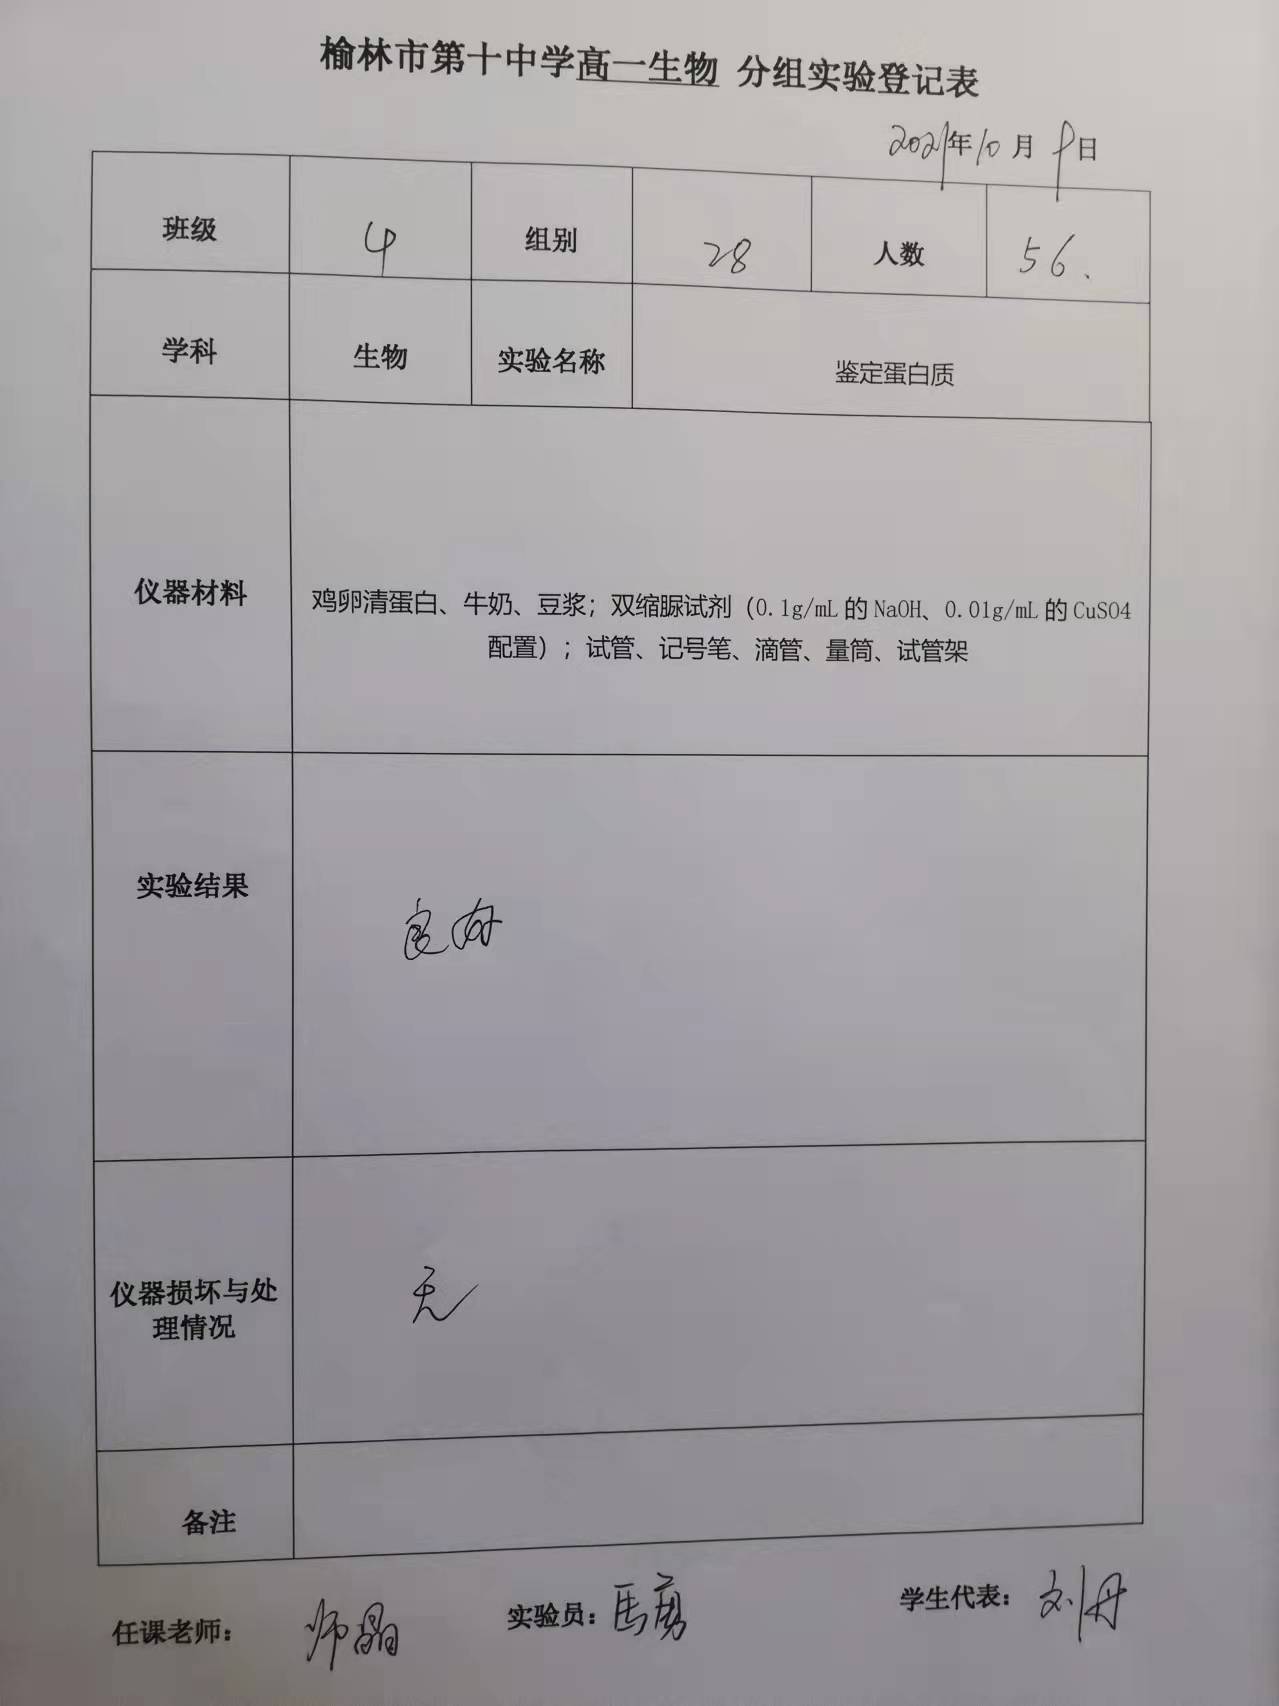 榆林市第十中学高一生物 分组实验登记表
2021年10月9日
班级 4 组别 28 人数 56.
学科 生物 实验名称 鉴定蛋白质
仪器材料
鸡卵清蛋白、牛奶、豆浆；双缩脲试剂（0.1g/mL 的 NaOH、0.01g/mL 的 CuSO4
配置）；试管、记号笔、滴管、量筒、试管架
实验结果
良好
仪器损坏与处
理情况
无
备注
任课老师： 师晶 实验员： 学生代表： 刘丹